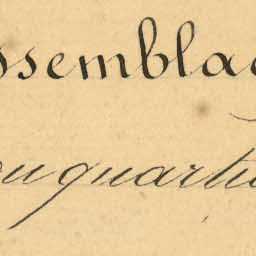 ssemblag
ou quartie